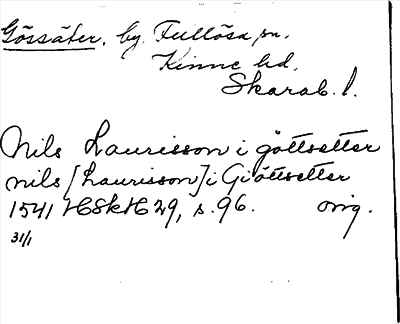 Gössäter, by. Fullösa sn.
Kinne hd.
Skarab. l.
Nils Laurisson i göttsetter
nils [Laurisson] i Giöttsetter
1541 HSkH 29, s. 96. orig.
31/1